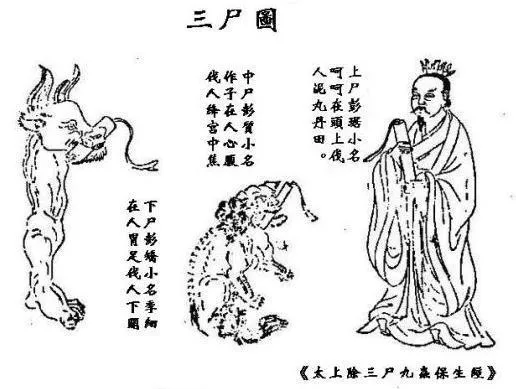 三尸圖
上尸彭琚小名
呵呵在頭上伐
人泥丸丹田。
中尸彭質小名
作子在人心腹
伐人絳宮中焦
下尸彭矯小名季細
在人胃足伐人下關
《太上除三尸九蟲保生經》